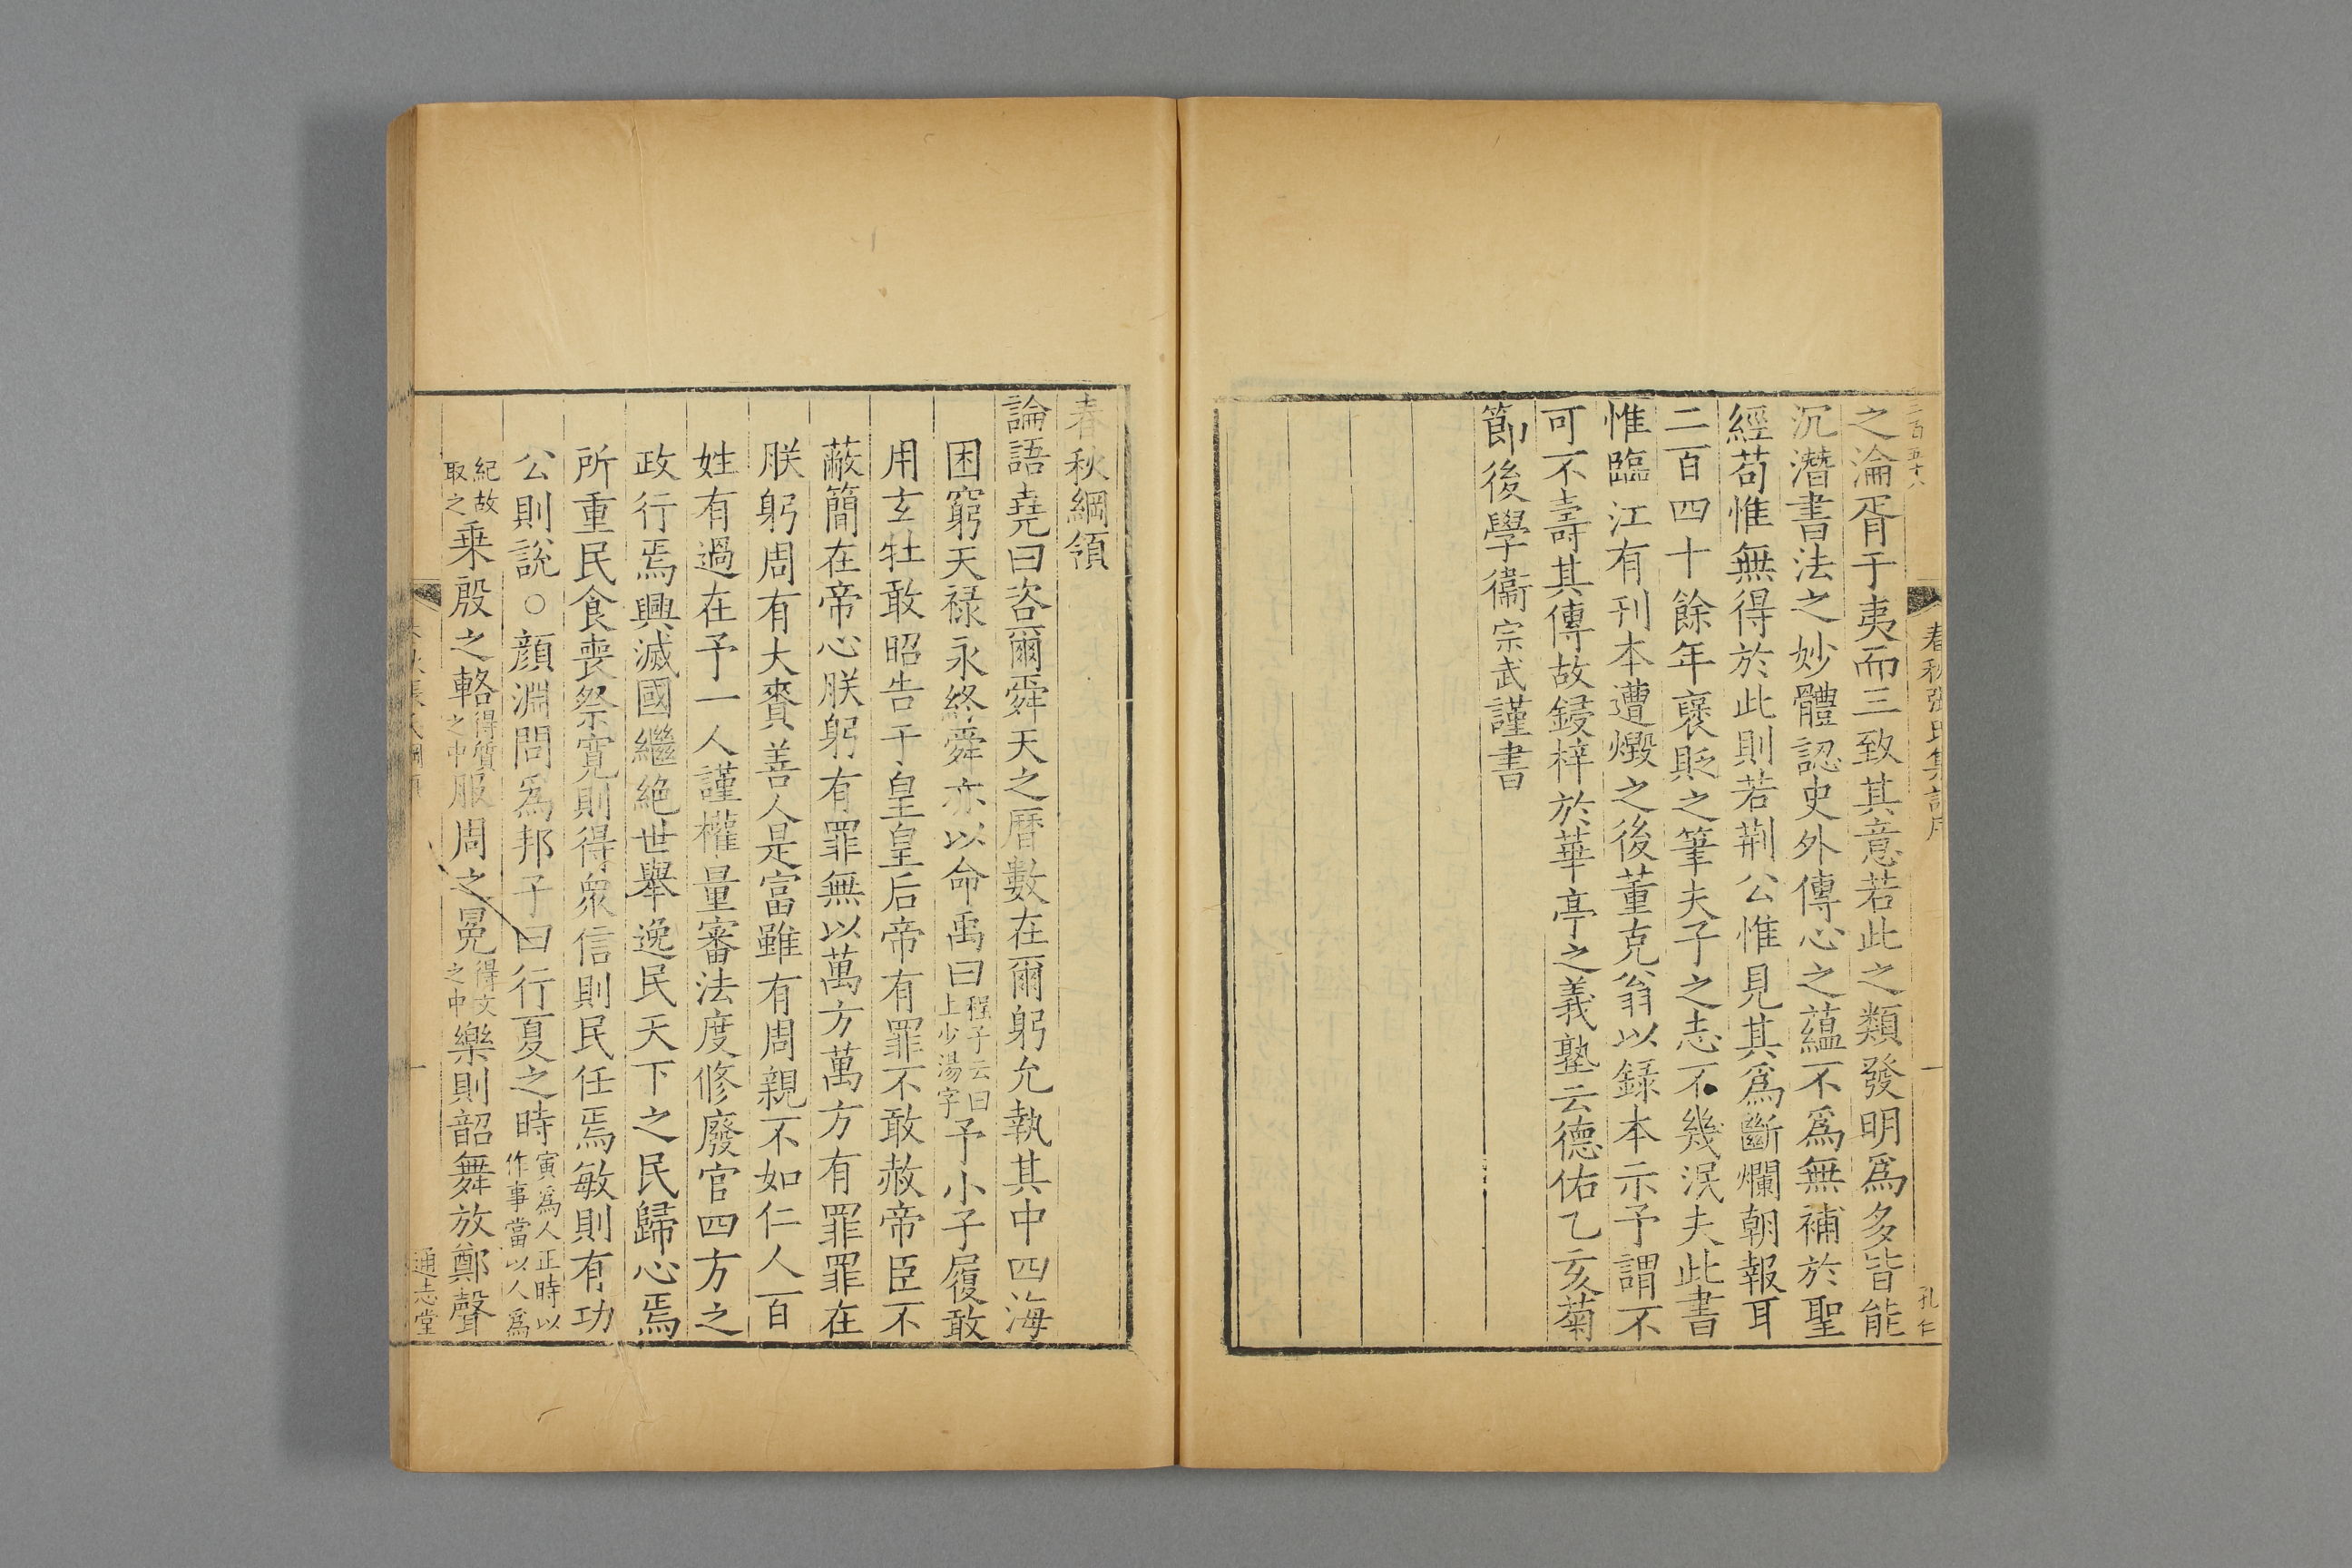 二百五十八
春秋張氏集註序
一
孔仁
之淪胥于夷而三致其意若此之類發明爲多皆能
沉潛書法之妙體認史外傳心之蘊不爲無補於聖
經苟惟無得於此則若荆公惟見其爲斷爛朝報耳
二百四十餘年褒貶之筆夫子之志不幾泯夫此書
惟臨江有刊本遭燬之後董克翁以録本示予謂不
可不壽其傳故鋟梓於華亭之義塾云德佑乙亥菊
節後學衞宗武謹書
春秋綱領
論語堯曰咨爾舜天之曆數在爾躬允執其中四海
困窮天禄永終舜亦以命禹曰程子云曰上少湯字予小子履敢
用玄牡敢昭告于皇皇后帝有罪不敢赦帝臣不
蔽簡在帝心朕躬有罪無以萬方萬方有罪罪在
朕躬周有大賚善人是富雖有周親不如仁人百
姓有過在予一人謹權量審法度修廢官四方之
政行焉興滅國繼絶世舉逸民天下之民歸心焉
所重民食喪祭寛則得衆信則民任焉敏則有功
公則説○顔淵問爲邦子曰行夏之時寅爲人正時以作事當以人爲
紀故取之乗殷之輅得質之中服周之冕得文之中樂則韶舞放鄭聲
一
通志堂